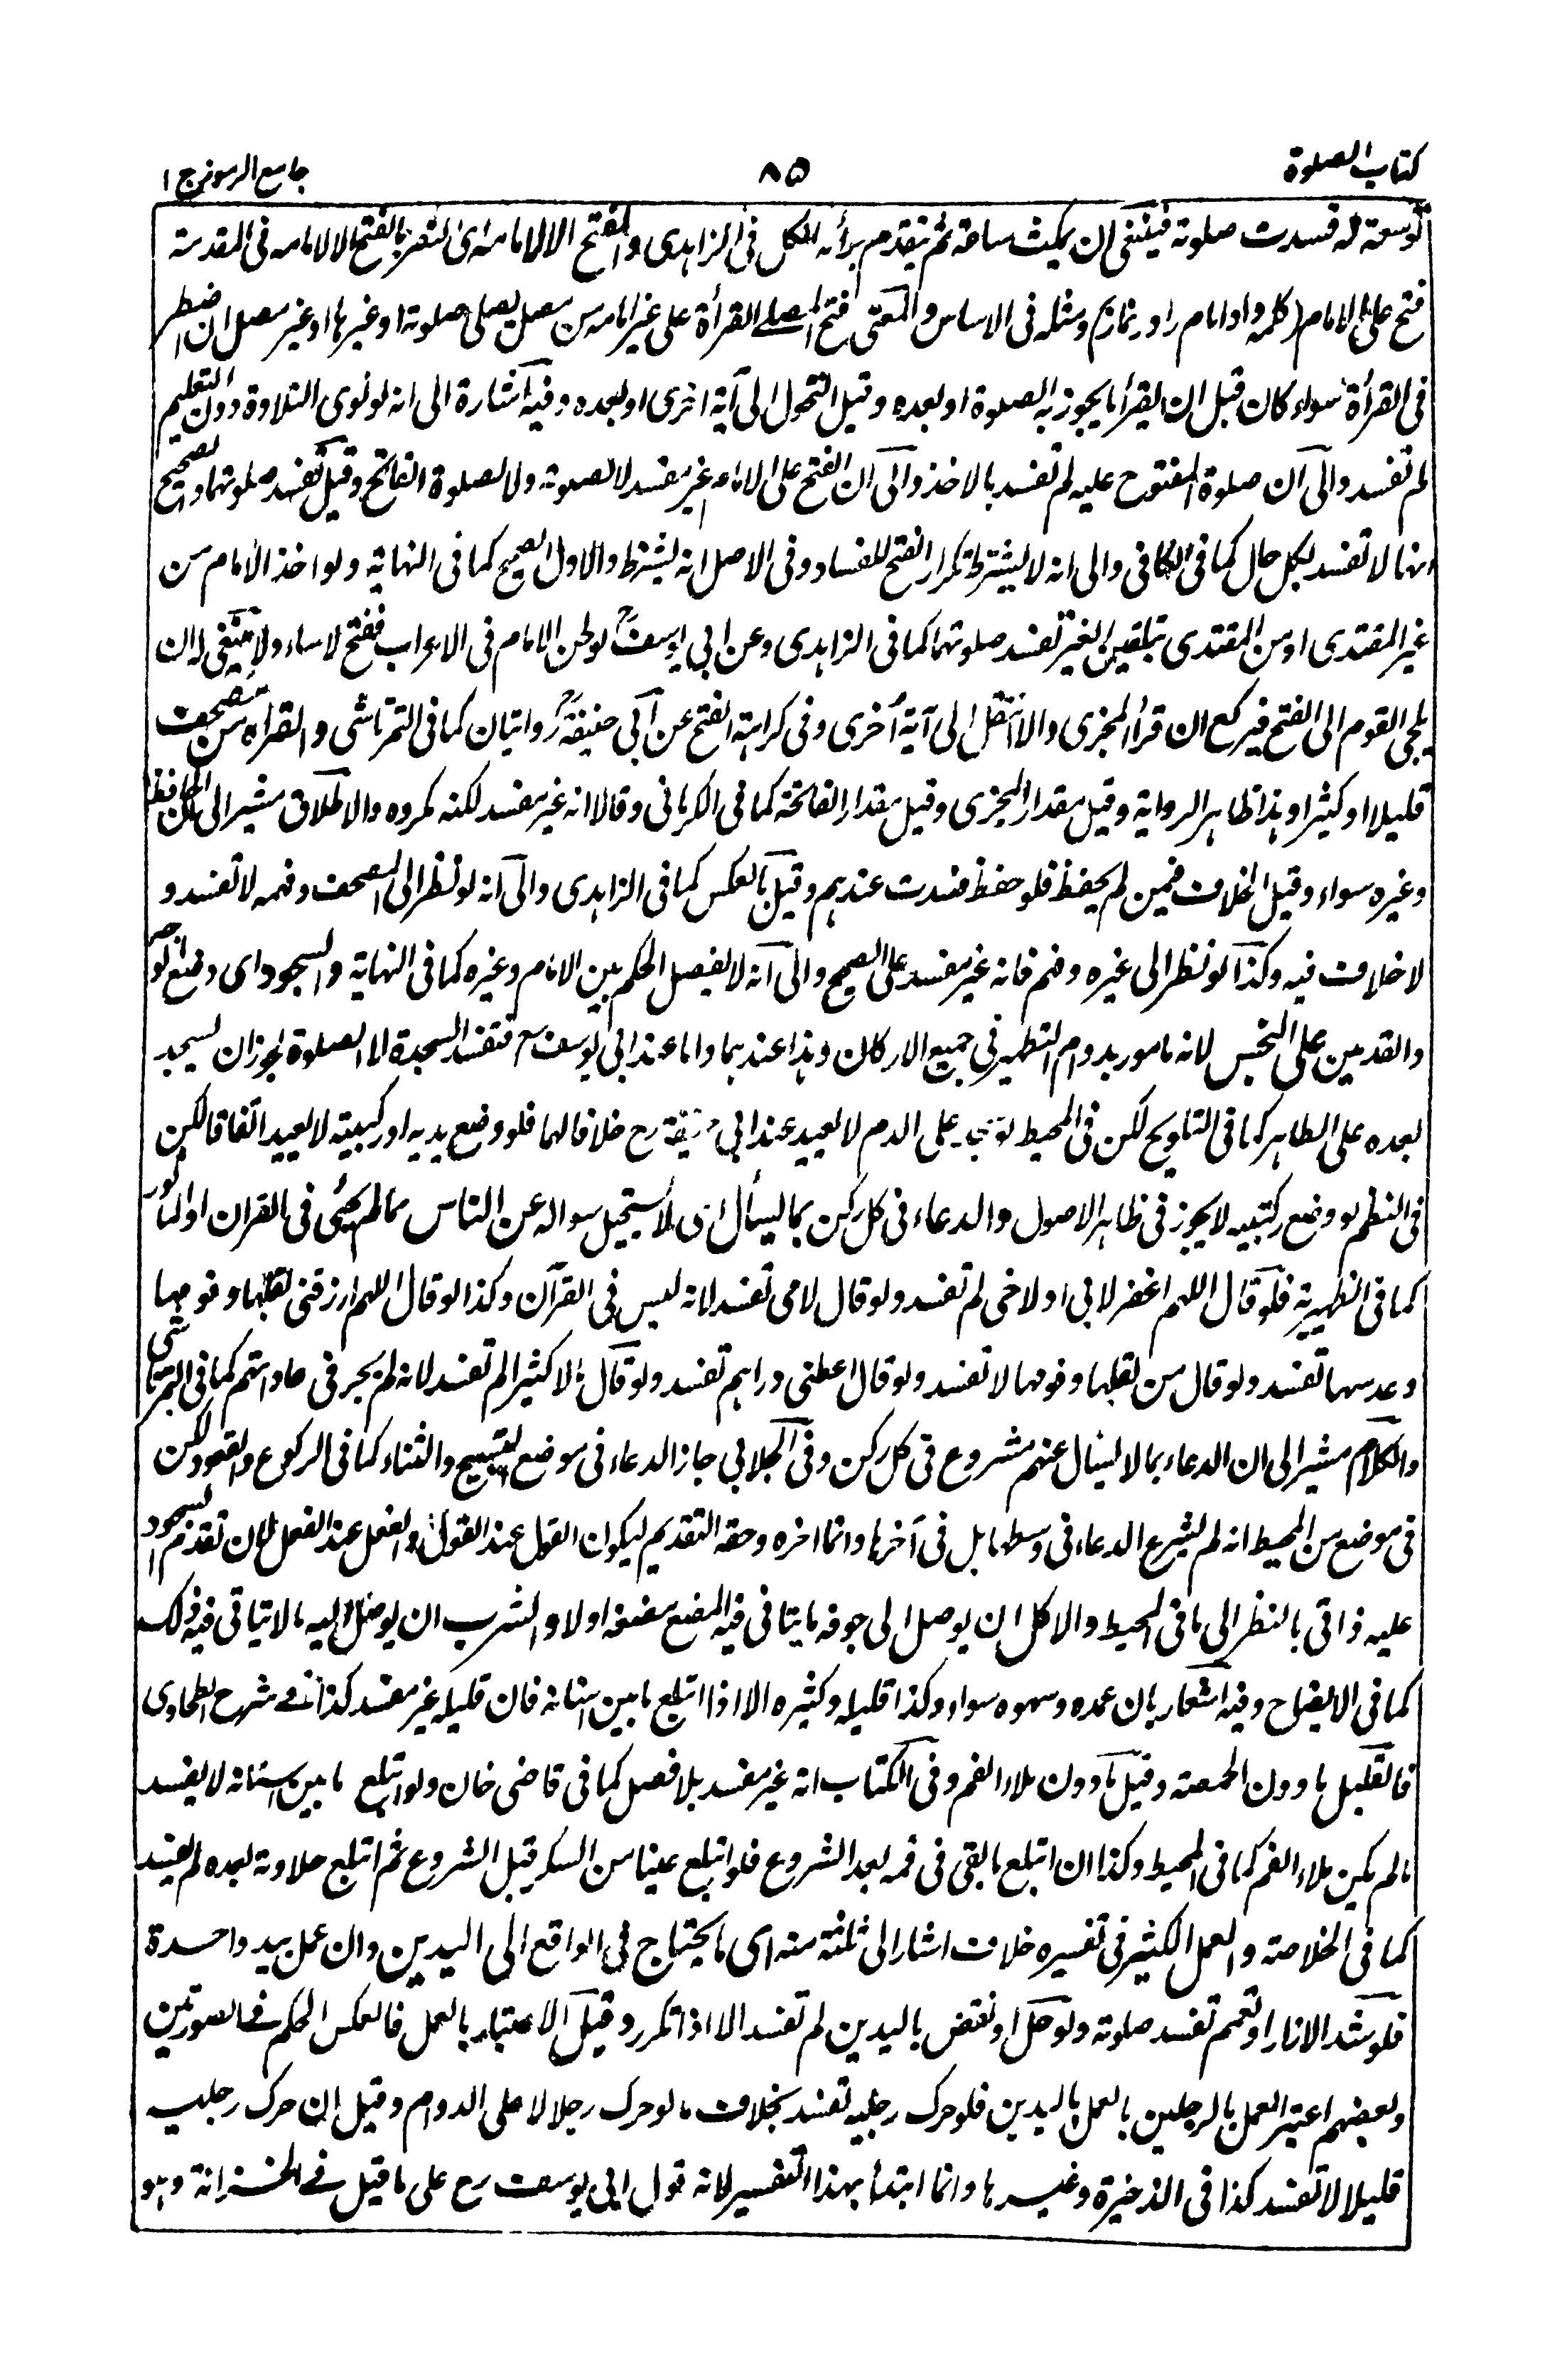 كتاب الصلوة
٨۵
جامع الرموز ج ١
توسعة له فسدت صلوته فينبغي ان يمكث ساعة ثم يتقدم برأيه الكل في الزاهدي والفتح الا لامامه اى التعرض بالفتح الا لامامه في المقدمة
فتح على الامام كلمه داد امام را در نمازيم ومثله في الاساس والمعنى فتح المصلي القرأة على غير امامه من مصل يصلي صلوته او غيرها او غير مصل ان اضطر
في القرأة سواء كان قبل ان يقرأ ما يجوز به الصلوة او بعده وقبل التحول الى آية اخرى او بعده وفيه اشارة الى انه لو نوى التلاوة دون التعليم
لم تفسد والى ان صلوة المفتوح عليه لم تفسد بالاخذ والى ان الفتح على الامام غير مفسد لا لصلوته ولا لصلوة الفاتح وقيل تفسد صلوتهما والصحيح
انها لا تفسد لكل حال كما في الكافي والى انه لا يشترط تكرار الفتح للفساد وفي الاصل انه يشترط والاول الصحيح كما في النهاية ولو اخذ الامام من
غير المقتدى او من المقتدى بتلقين الغير تفسد صلوتهما كما في الزاهدى وعن ابي يوسف لو لحن الامام في الاعراب ففتح لاساء ولا ينبغي له ان
يلجي القوم الى الفتح فيركع ان قرأ المجزى والا انتقل الى آية أخرى وفي كراهة الفتح عن ابي حنيفة روايتان كما في التمرتاشى والقراءة من مصحف
قليلا او كثيرا وهذا ظاهر الرواية وقيل مقدار المجزى وقيل مقدار الفاتحة كما في الكرماني وقالا انه غير مفسد لكنه مكروه والاطلاق مشير الى ان الحافظ
وغيره سواء وقيل الخلاف فيمن لم يحفظ فلو حفظ فسدت عندهم وقيل بالعكس كما في الزاهدى والى انه لو نظر الى المصحف وفهمه لا تفسد و
لا خلاف فيه وكذا لو نظر الى غيره وفهم فانه غير مفسد على الصحيح والى انه لا يفصل الحكم بين الامام وغيره كما في النهاية والسجود اى وضع
والقدمين على النجس لانه مامور بدوام التطهير في جميع الاركان وهذا عندهما واما عند ابي يوسف رح فتفسد السجدة لا الصلوة لجوز ان يسجد
بعده على الطاهر كما في التلويح لكن في المحيط لو على الدم لا يعيد عند ابي حنيفة رح خلافا لهما فلو وضع يديه او ركبتيه لا يعيد اتفاقا لكن
في النظم لو وضع ركبتيه لا يجوز في ظاهر الاصول والدعاء في كل ركن بما يسأل اى لا يستحيل سواله عن الناس مما لم يجئ في القران او الماثور
كما في الظهيرية فلو قال اللهم اغفر لابي او لاخى لم تفسد ولو قال لامى تفسد لانه ليس في القرآن وكذا لو قال اللهم ارزقني بقلها وفومها
وعدسها تفسد ولو قال من بقلها وفومها لا تفسد ولو قال اعطني دراهم تفسد ولو قال الا كثيرا لم تفسد لانه لم يجر في عاداتهم كما في التمرتاشى
والكلام مشير الى ان الدعاء بما لا يسأل عنهم مشروع في كل ركن وفي الجلابي جاز الدعاء في موضع التسبيح والثناء كما في الركوع والقعود لكن
في موضع من المحيط انه لم يشرع الدعاء في وسطها بل في آخرها وانما اخره وحقه التقديم ليكون القول عند القول والفعل عند الفعل لان تقدم السجود
عليه ذاتي بالنظر الى ما في المحيط والاكل ان يوصل الى جوفه ما يتاتى فيه المضغ مضغه اولا والشرب ان يوصل اليه ما لا يتاتى فيه ذلك
كما في الايضاح وفيه اشعار بان عمده وسهوه سواء وكذا قليله وكثيره الا اذا ابتلع ما بين اسنانه فان قليله غير مفسد كذا في شرح الطحاوى
فالقليل ما دون الحمصة وقيل ما دون ملاء الفم وفي الكتاب انه غير مفسد بلا فصل كما في قاضى خان ولو ابتلع ما بين اسنانه لا يفسد
ما لم يكن ملاء الفم كما في المحيط وكذا ان ابتلع ما بقى في فمه بعد الشروع فلو ابتلع عينا من السكر قبل الشروع ثم ابتلع حلاوته بعده لم يفسد
كما في الخلاصة والعمل الكثير في تفسيره خلاف اشار الى ثلثة منه اى ما يحتاج في الواقع الى اليدين وان عمل بيد واحدة
فلو شد الازار او تعمم تفسد صلوته ولو حل او نقض باليدين لم تفسد الا اذا تكرر وقيل الاعتبار بالعمل فالعكس الحكم في الصورتين
وبعضهم اعتبر العمل بالرجلين بالعمل باليدين فلو حرك رجليه تفسد بخلاف ما لو حرك رجلا لا على الدوام وقيل ان حرك رجليه
قليلا لا تفسد كذا في الذخيرة وغيرها وانما ابتدأ بهذا التفسير لانه قول ابي يوسف رح على ما قيل في الخزانة وهو